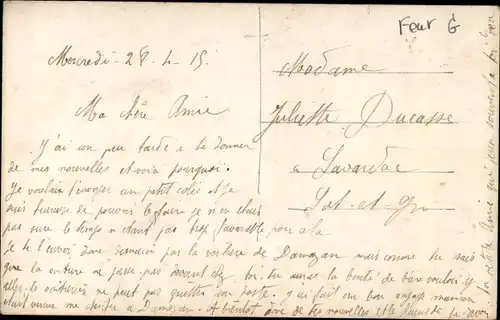 Feur G
Mercredi - 28-4-15.
Madame
Ma chère Amie
Juliette Ducasse
J'ai un peu tardé a te donner
à Lavardac
de mes nouvelles et voici pourquoi.
Lot-et-G
Je voulais t'envoyer un petit colis et je
suis heureuse de pouvoir le faire je n'en étais
pas sure le temps n'étant pas très favorable pour cela
je te l'envoi donc demain par la voiture de Damazan mais comme tu sais
que la voiture ne passe pas devant chez toi tu auras la bonté de bien vouloir y
aller le voiturier ne peut pas quitter son poste. j'ai fait un bon voyage maman
était venue me chercher à Damazan. A bientôt donc de tes nouvelles et le plaisir de
ta petite Amie qui